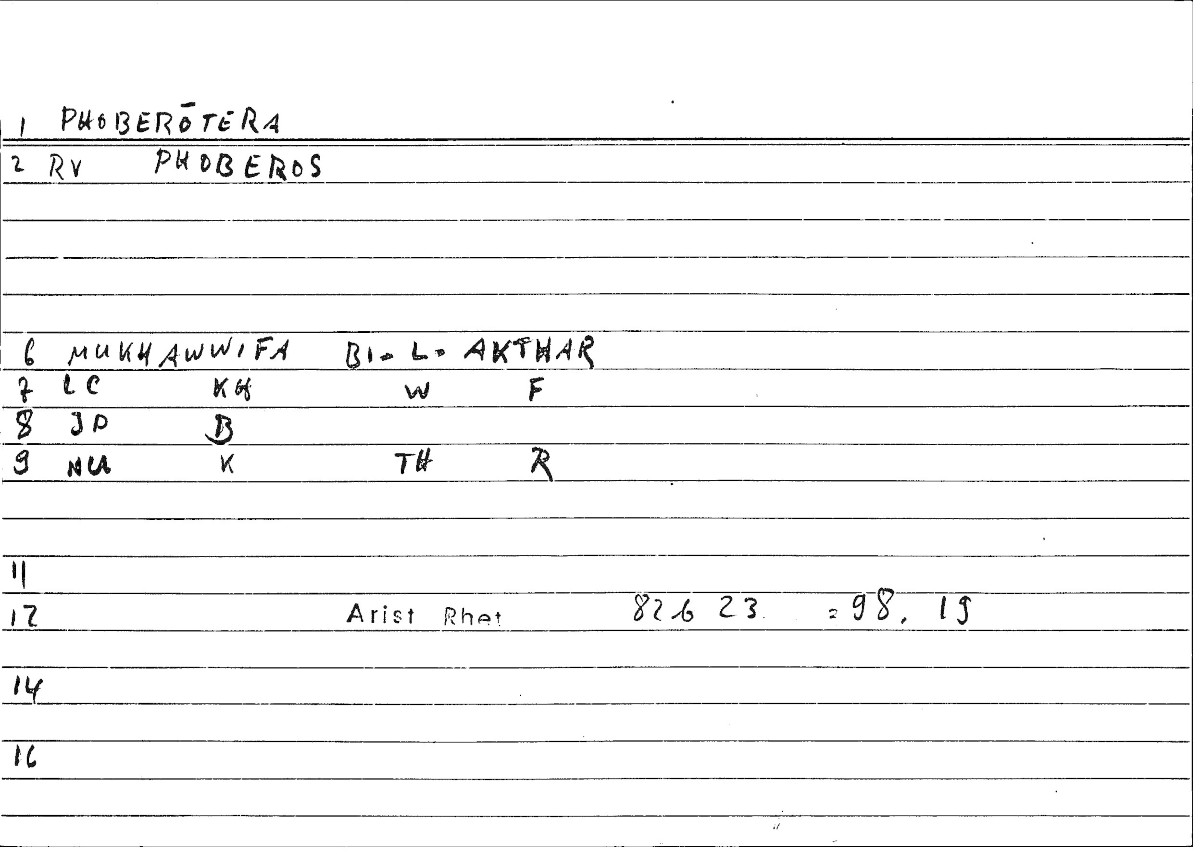 1 PHOBERŌTERA
2 RV PHOBEROS
6 MUKHAWWIFA BI-L-AKTHAR
7 LC KH W F
8 JP B
9 NUA K TH R
11
12 Arist Rhet 82b 23 =98,19
14
16